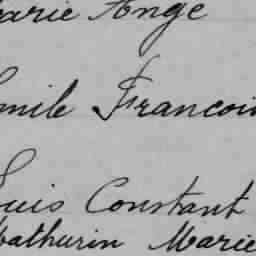 Marie Ange
Emile Francois
Louis Constant
Mathurin Marie